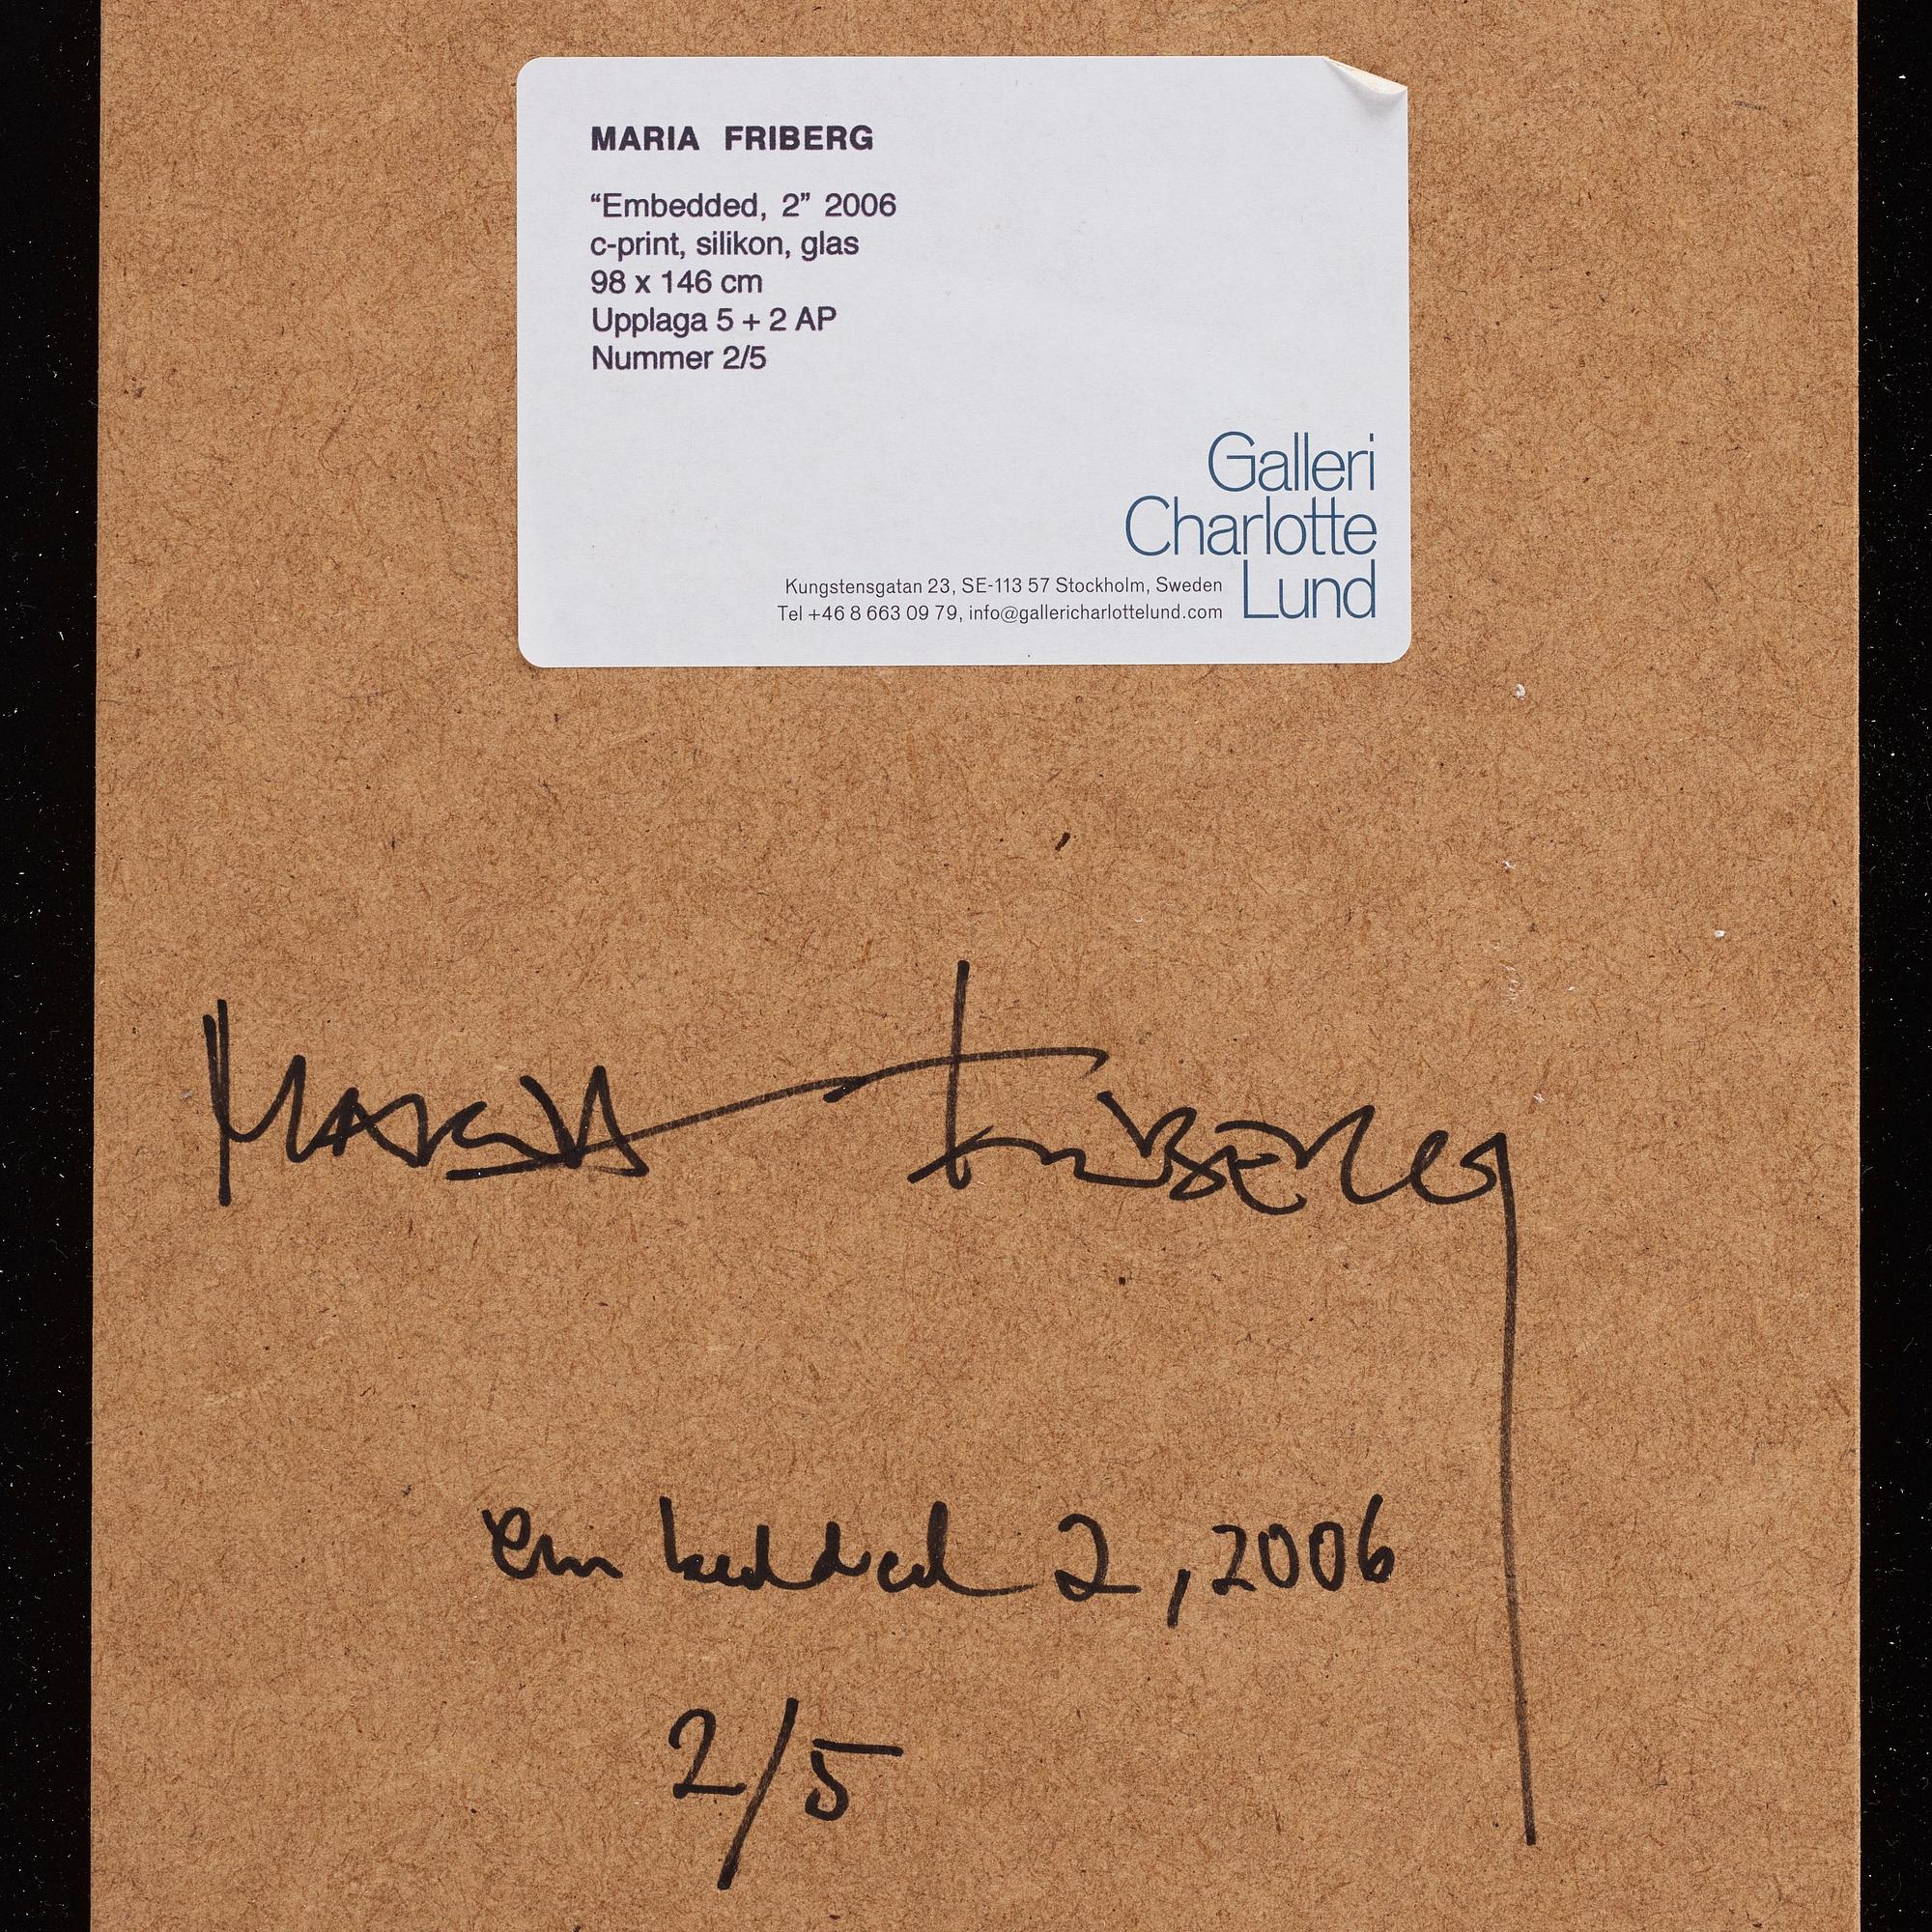 MARIA FRIBERG
“Embedded, 2” 2006
c-print, silikon, glas
98 x 146 cm
Upplaga 5 + 2 AP
Nummer 2/5
Galleri
Charlotte
Lund
Kungstensgatan 23, SE-113 57 Stockholm, Sweden
Tel +46 8 663 09 79, info@gallericharlottelund.com
MARIA FRIBERG
embedded 2, 2006
2/5